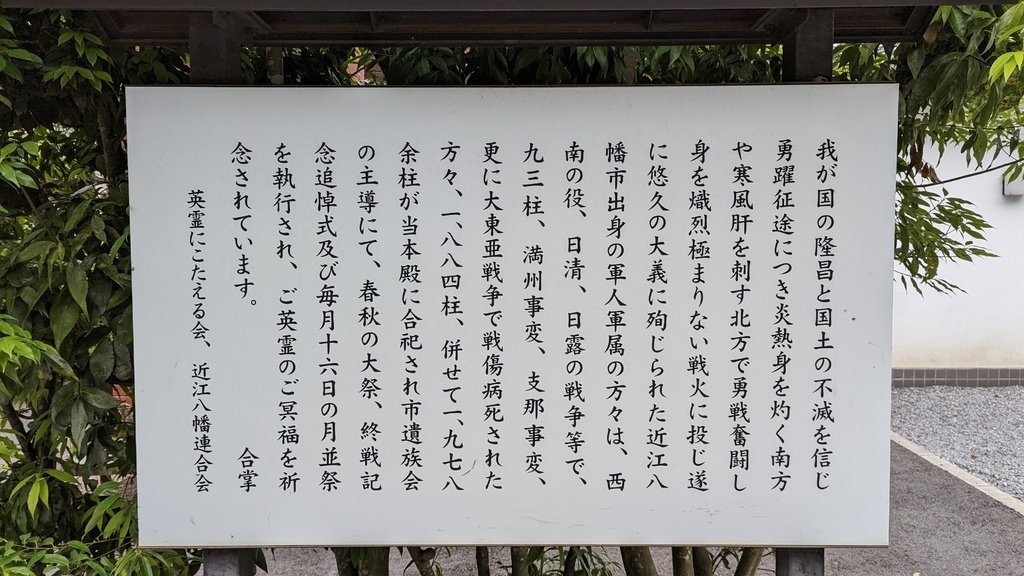 我が国の隆昌と国土の不滅を信じ
勇躍征途につき炎熱身を灼く南方
や寒風肝を刺す北方で勇戦奮闘し
身を熾烈極まりない戦火に投じ遂
に悠久の大義に殉じられた近江八
幡市出身の軍人軍属の方々は、西
南の役、日清、日露の戦争等で、
九三柱、満州事変、支那事変、
更に大東亜戦争で戦傷病死された
方々、一、八八四柱、併せて一、九七八
余柱が当本殿に合祀され市遺族会
の主導にて、春秋の大祭、終戦記
念追悼式及び毎月十六日の月並祭
を執行され、ご英霊のご冥福を祈
念されています。
合掌
英霊にこたえる会、近江八幡連合会